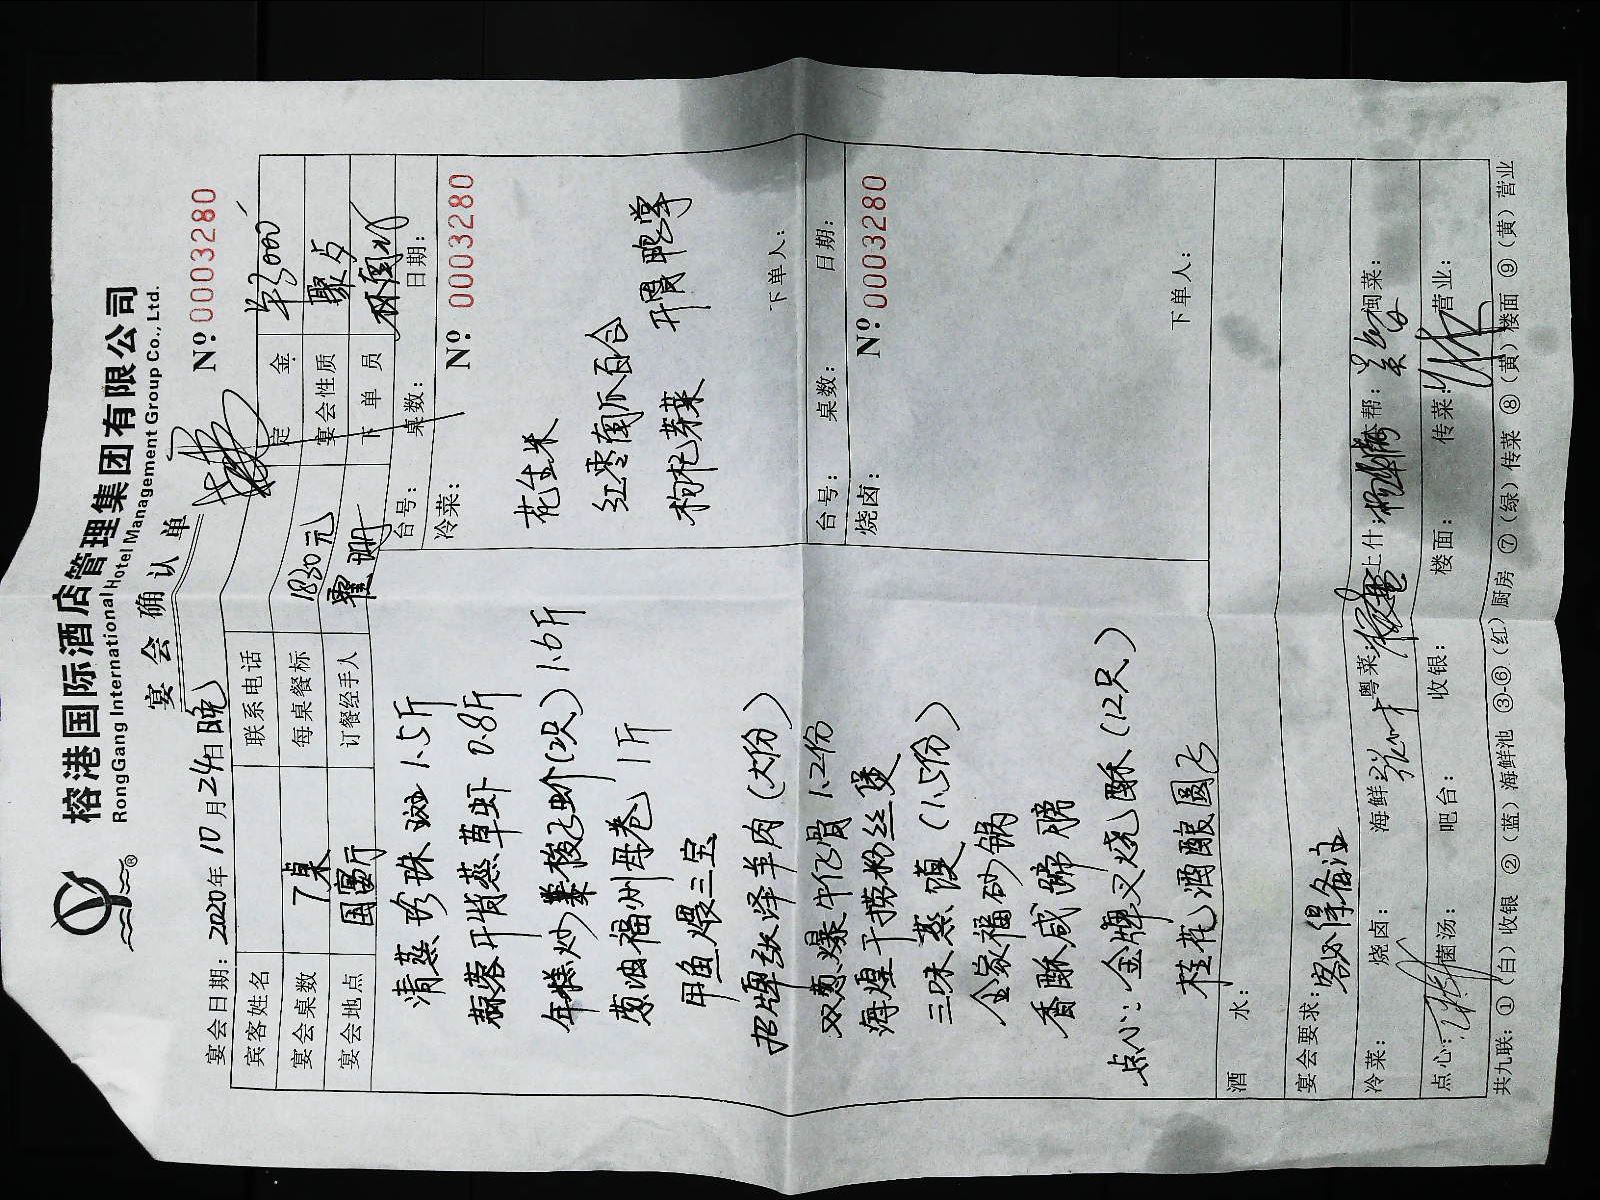 榕港国际酒店管理集团有限公司
RongGang International Hotel Management Group Co., Ltd.
宴会确认单
宴会日期：2020年10月24日晚
Nº 0003280
宾客姓名 联系电话 定金 ¥3000
宴会桌数 7桌 每桌餐标 1830元 宴会性质 聚
宴会地点 国宴厅 订餐经手人 下单员
台号： 桌数： 日期：
冷菜： Nº 0003280
花生米
红枣南瓜百合
枸杞芽菜 开胃
下单人：
清蒸珍珠斑 1.5斤
蒜蓉开背蒸草虾 0.8斤
年糕炒梭子蟹(2只) 1.6斤
葱油福州 1斤
甲鱼煨三宝
招牌张泽羊肉(大份)
双葱爆牛仔骨 1.2份
海 干捞粉丝煲
三味蒸 (1.5份)
全家福砂锅
香酥咸蹄膀
点心：金牌叉烧酥(12只)
桂花酒酿圆子
台号： 桌数： 日期：
烧卤： Nº 0003280
下单人：
酒水：
宴会要求：
冷菜： 烧卤： 海鲜 粤菜： 上什： 本帮： 闽菜：
点心： 菌汤： 吧台： 收银： 楼面： 传菜： 营业：
共九联：①（白）收银 ②（蓝）海鲜池 ③-⑥（红）厨房 ⑦（绿）传菜 ⑧（黄）楼面 ⑨（黄）营业